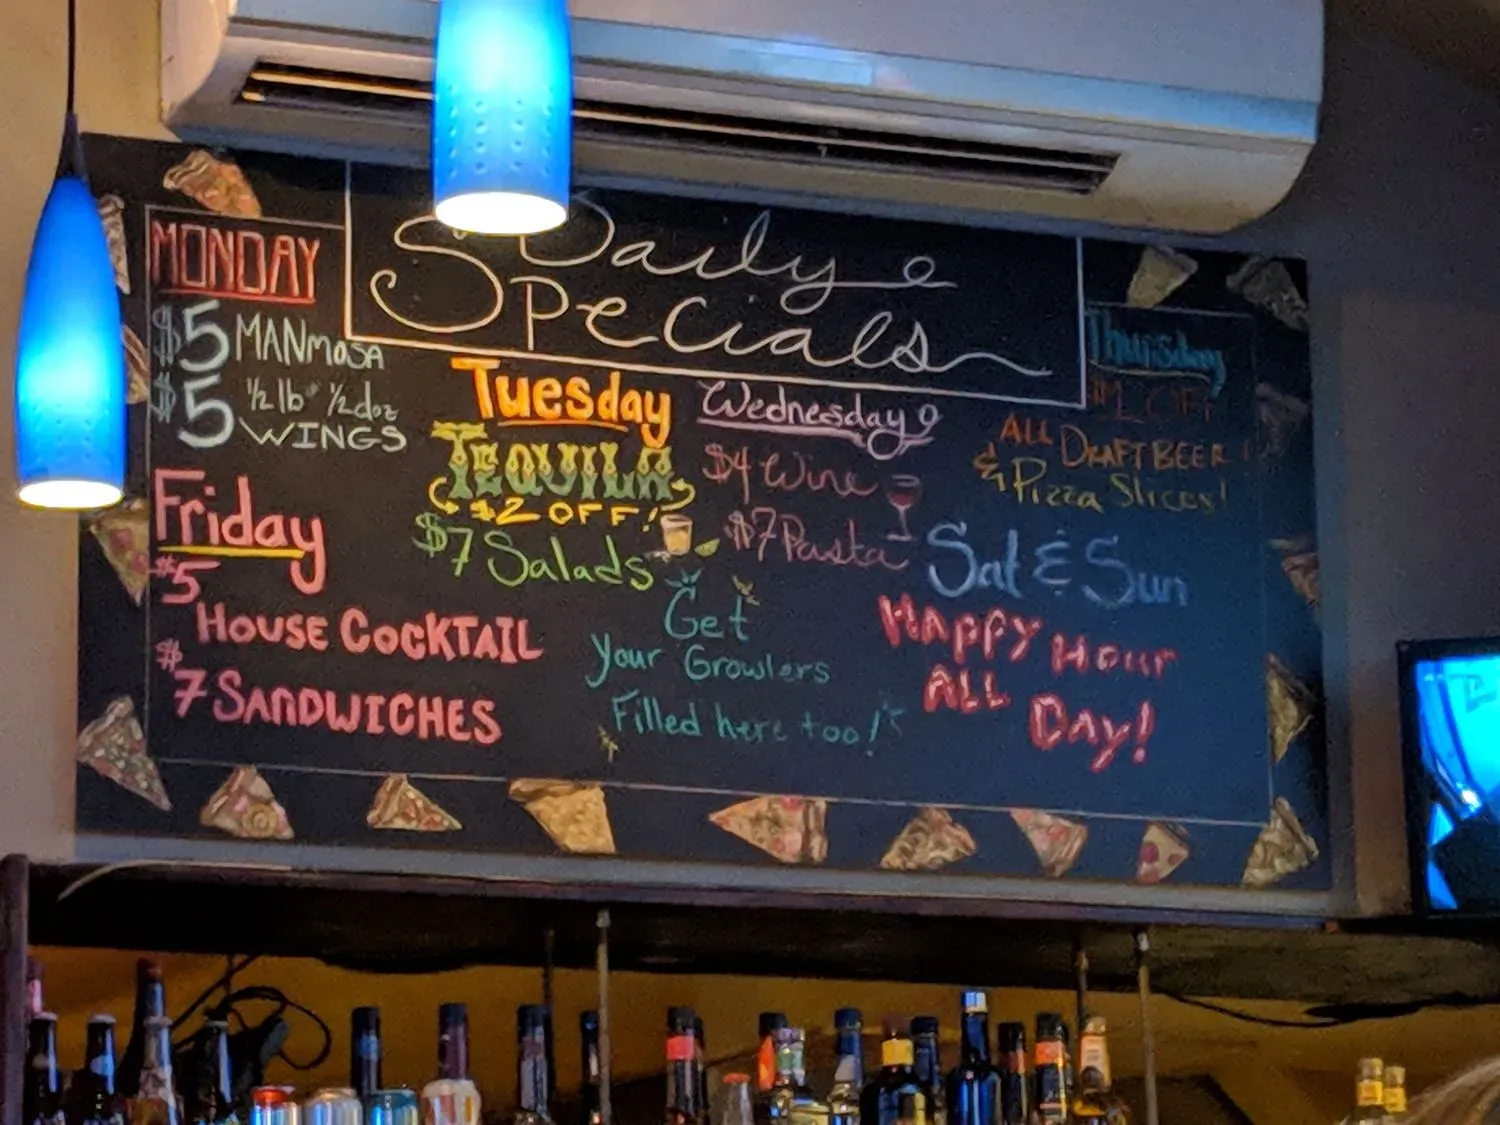 Daily
Specials
MONDAY
$5 MANmosA
$5 ½ lb ½ doz
WINGS
Tuesday
TEQUILA
$2 OFF!
$7 Salads
Wednesday
$4 Wine
$7 Pasta
Thursday
$1 OFF
ALL DRAFT BEER!
& Pizza Slices!
Friday
$5
HOUSE COCKTAIL
$7 SANDWICHES
Get
your Growlers
Filled here too!
Sat & Sun
HAPPY HOUR
ALL
DAy!